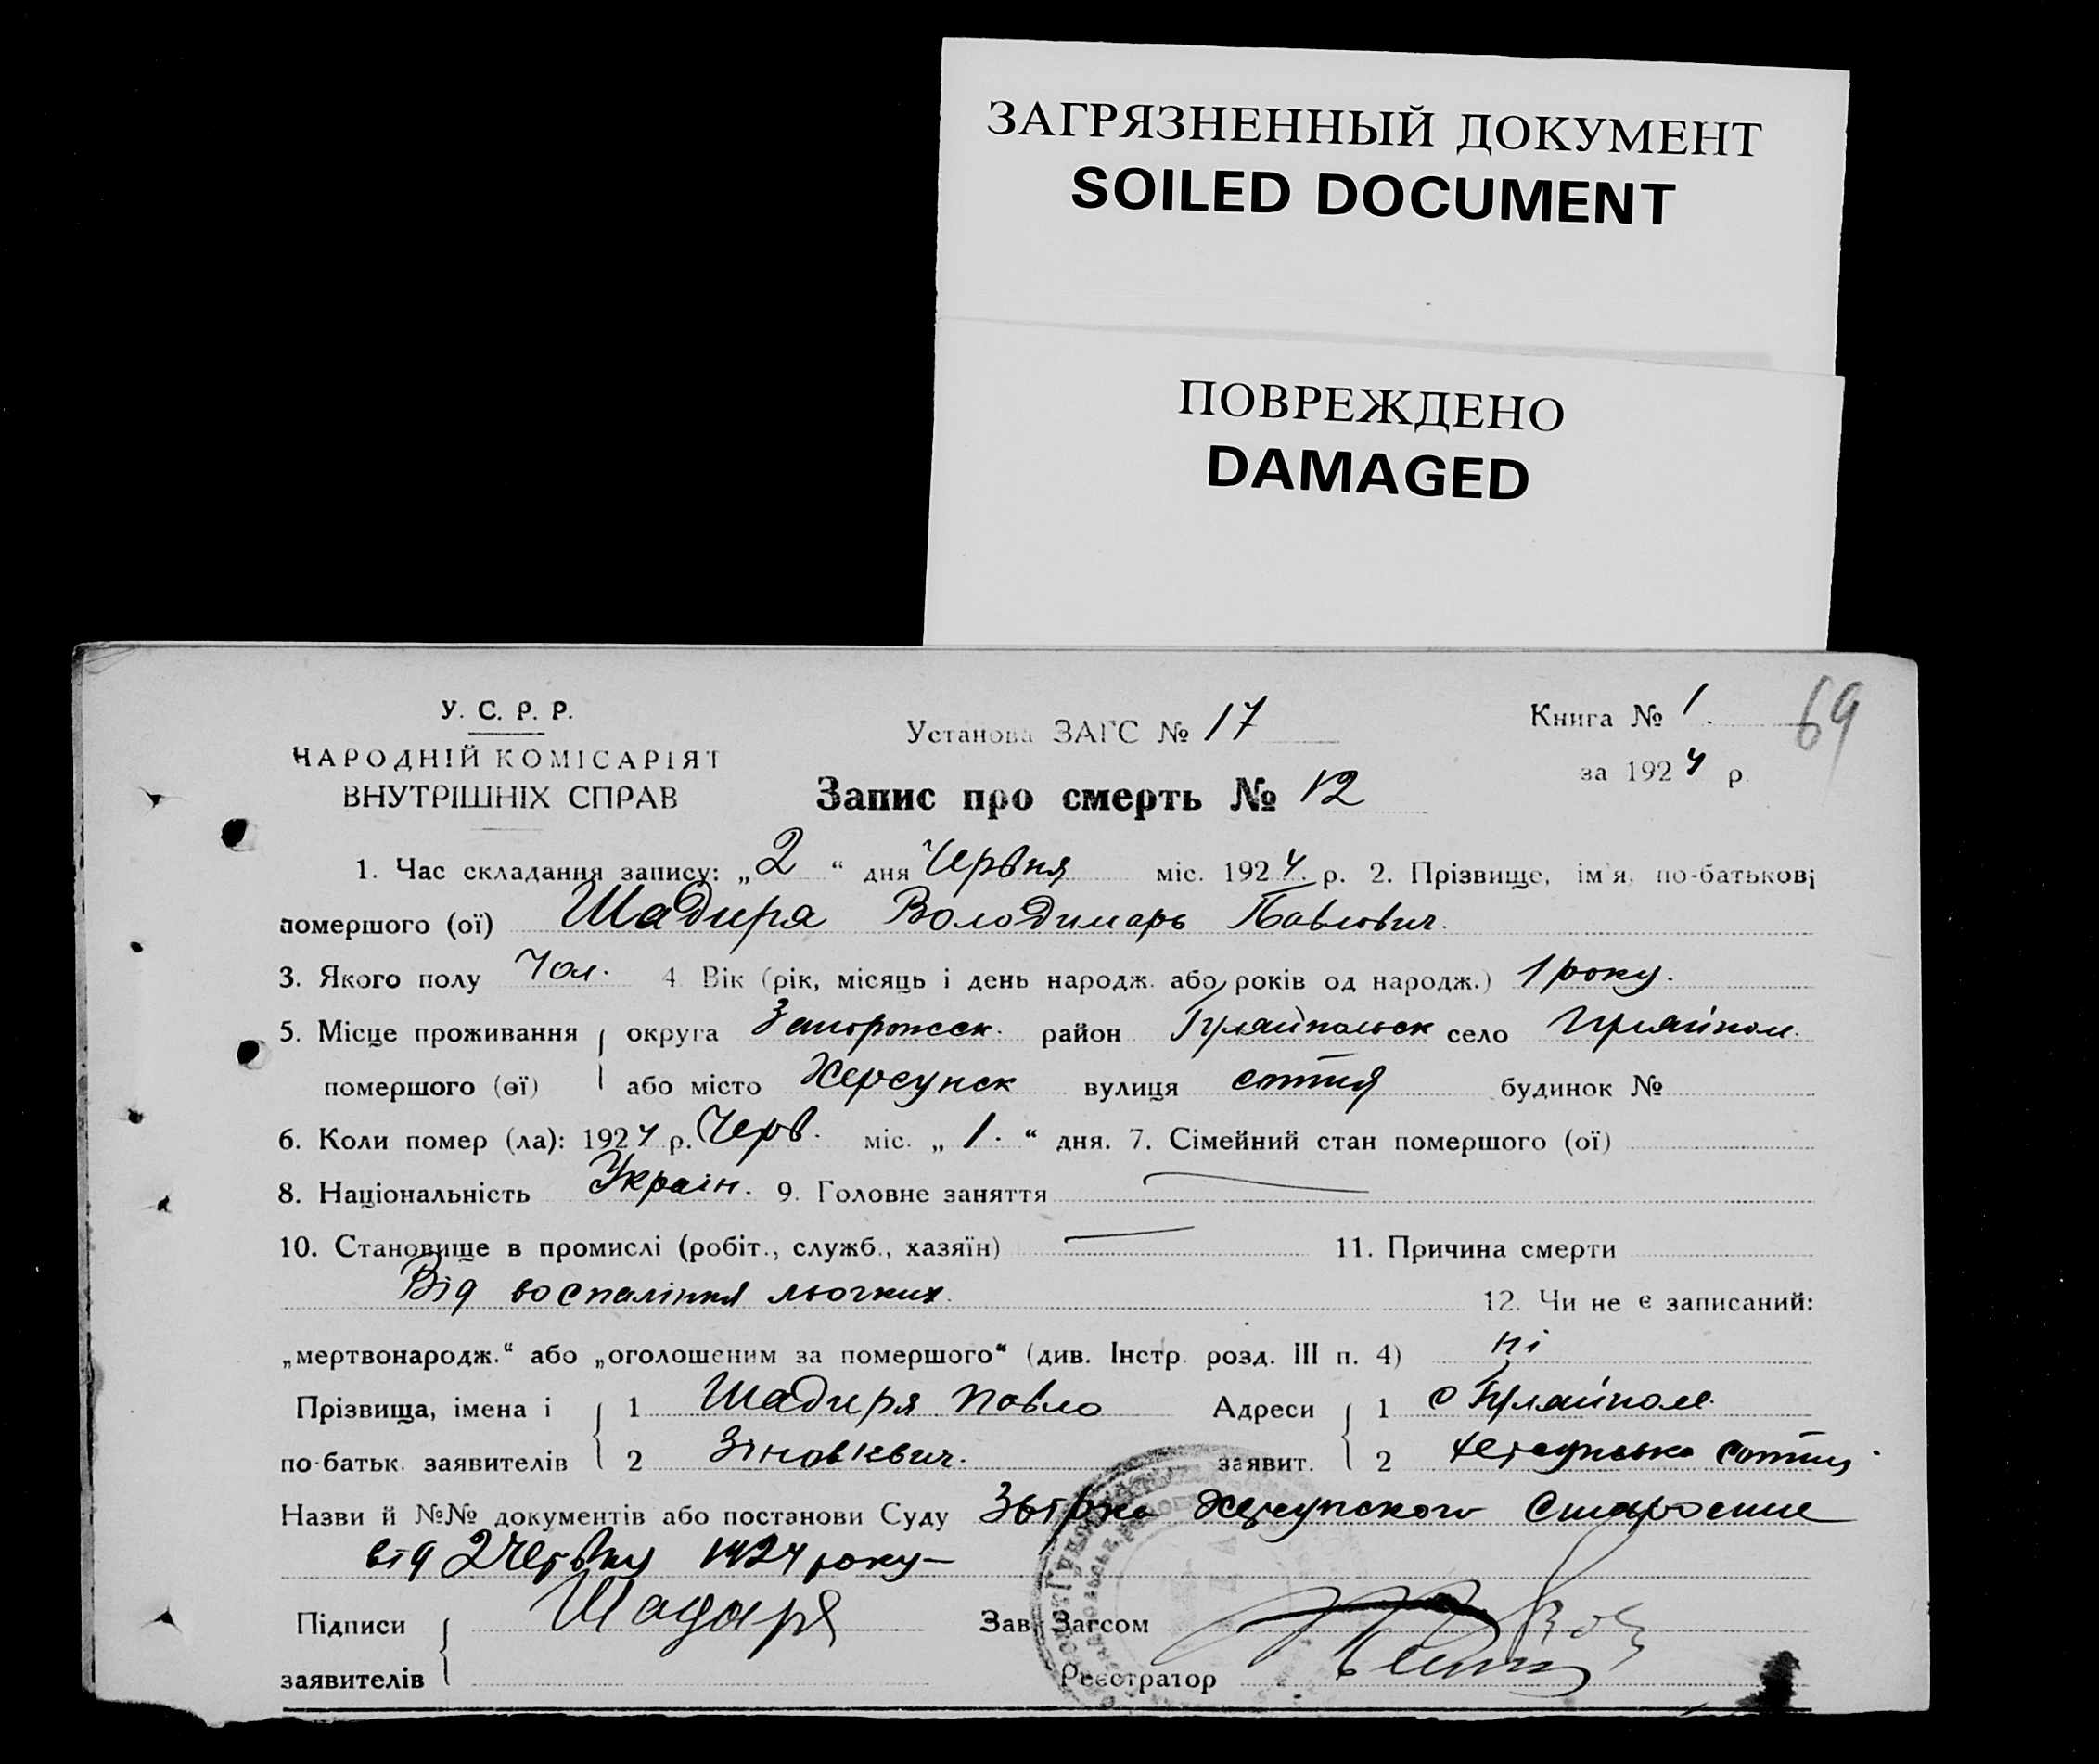 ЗАГРЯЗНЕННЫЙ ДОКУМЕНТ
SOILED DOCUMENT
ПОВРЕЖДЕНО
DAMAGED
У. С. Р. Р.
НАРОДНІЙ КОМІСАРІЯТ
ВНУТРІШНІХ СПРАВ
Установа ЗАГС № 17
Запис про смерть № 12
Книга № 1.
69
за 1924 р.
1. Час складання запису: „2“ дня Червня міс. 1924 р. 2. Прізвище, ім'я, по-батькові
помершого (ої) Шадиря Володимарь Павлович.
3. Якого полу Чол. 4. Вік (рік, місяць і день народж. або років од народж.) 1 року.
5. Місце проживання округа Запорожск. район Гуляйпольск село Гуляйполе.
помершого (ої) або місто Херсунск вулиця сотня будинок №
6. Коли помер (ла): 1924 р. Черв. міс. „1.“ дня. 7. Сімейний стан помершого (ої)
8. Національність Україн. 9. Головне заняття —
10. Становище в промислі (робіт., служб., хазяїн) — 11. Причина смерти
Від воспаління льогких. 12. Чи не є записаний:
„мертвонародж.“ або „оголошеним за помершого“ (див. Інстр. розд. III п. 4) ні
Прізвища, імена і 1 Шадиря Павло Адреси 1 с Гуляйполе.
по-батьк. заявителів 2 Зіновієвич. заявит. 2 Херсунська сотня
Назви й №№ документів або постанови Суду Херсунского
від 2 Червня 1924 року —
Підписи Шадаря Зав. Загсом
заявителів Реєстратор